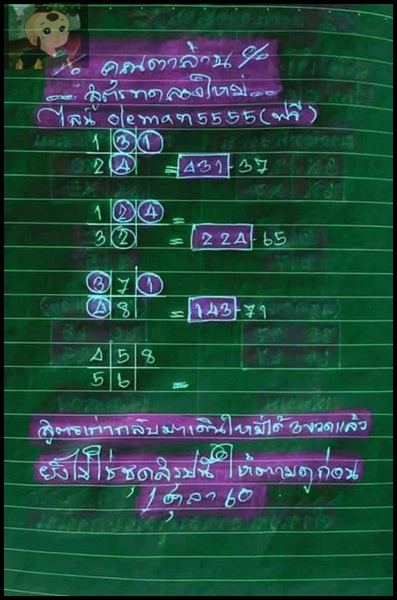 % คุณตาล้าน %
สูตรทดลองใหม่
ไลน์ oleman5555 (ฟรี)
1 3 1
2 4 = 431-37
1 2 4 =
3 2 = 224-65
3 7 1
4 8 = 143-71
4 5 8
5 6 =
สูตรเก่ากลับมาเดินใหม่ได้ 3 งวดแล้ว
ยังไม่ใช่ชุดสรุปนี้ ให้ตามดูก่อน
1 ตุลา 60